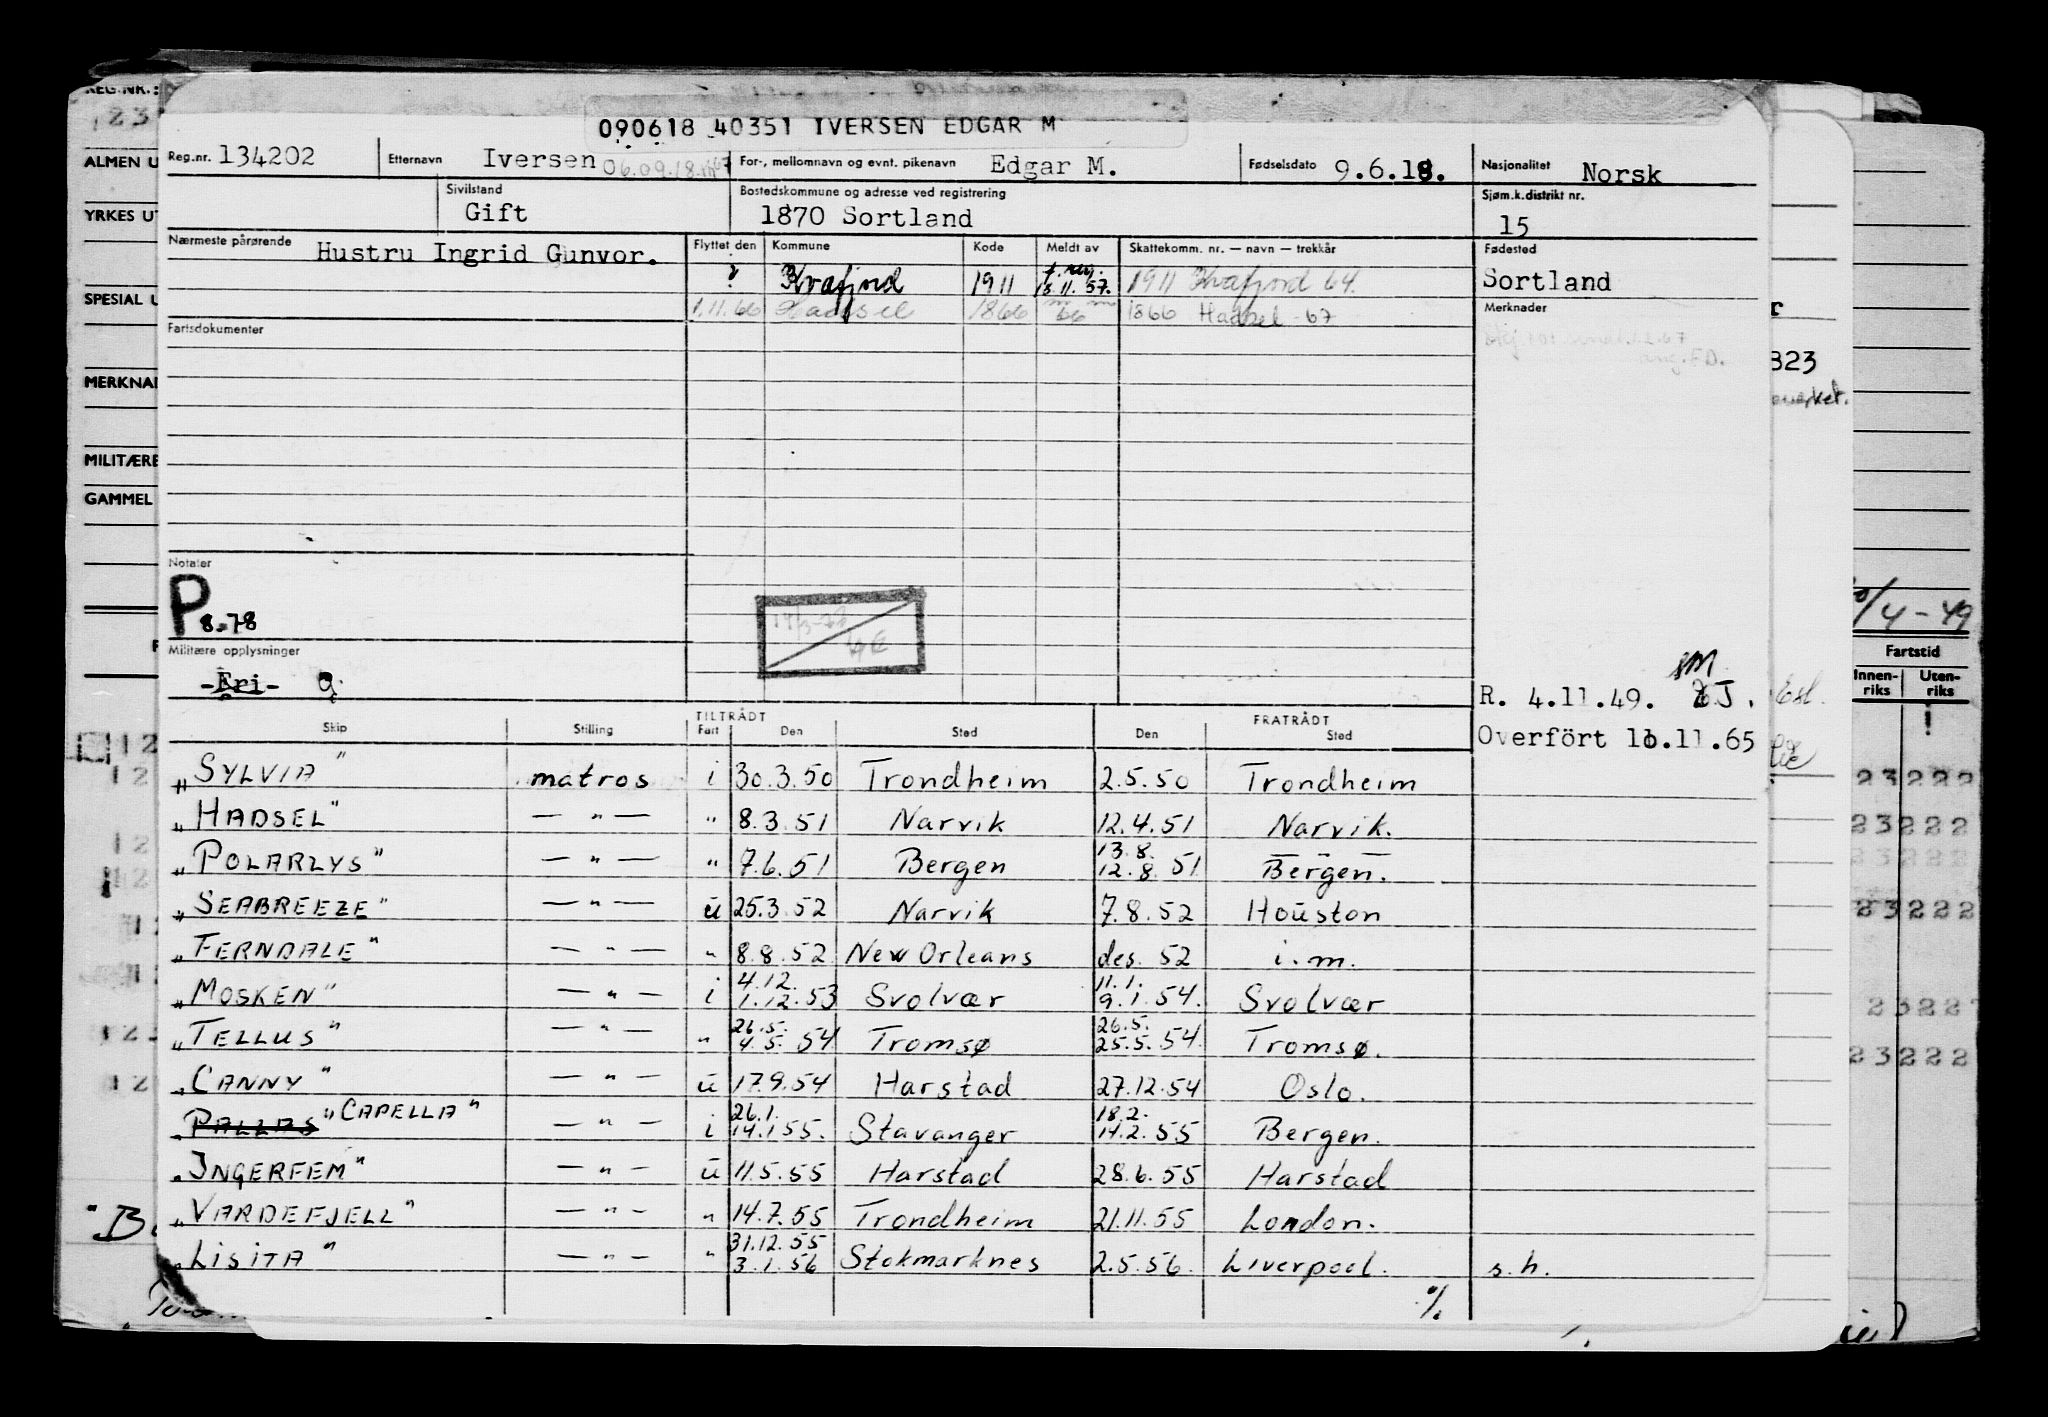 090618 40351 IVERSEN EDGAR M
Reg.nr. 134202 Etternavn Iversen 06.09.18. For-, mellomnavn og evnt. pikenavn Edgar M. Fødselsdato 9.6.18. Nasjonalitet Norsk
Sivilstand Gift Bostedskommune og adresse ved registrering 1870 Sortland Sjøm.k.distrikt nr. 15
Nærmeste pårørende Hustru Ingrid Gunvor. Flyttet den Kommune Kode Meldt av Skattekomm. nr. — navn — trekkår Fødested
? Kvæfjord 1911 13.11.57. 1911 Kvæfjord 64. Sortland
1.11.66 Hadsel 1866 66 1866 Hadsel -67 Merknader
Fartsdokumenter
Notater
P 8.78
Militære opplysninger
-Fri-
R. 4.11.49.
Overfört 10.11.65
TILTRÅDT FRATRÅDT
Skip Stilling Fart Den Sted Den Sted
„SYLVIA" matros i 30.3.50 Trondheim 2.5.50 Trondheim
„HADSEL" — " — " 8.3.51 Narvik 12.4.51 Narvik.
„POLARLYS" — " — " 7.6.51 Bergen 13.8. 12.8.51 Bergen.
„SEABREEZE" — " — u 25.3.52 Narvik 7.8.52 Houston
„FERNDALE" — " — " 8.8.52 New Orleans des. 52 i.m.
„MOSKEN" — " — i 4.12. 1.12.53 Svolvær 11.1. 9.1.54. Svolvær
„TELLUS" — " — " 26.5. 4.5.54 Tromsø 26.5. 25.5.54. Tromsø.
„CANNY" — " — u 17.9.54 Harstad 27.12.54 Oslo.
„PALLAS "CAPELLA" — " — i 26.1. 14.1.55. Stavanger 18.2. 14.2.55 Bergen.
„INGERFEM" — " — u 11.5.55 Harstad 28.6.55 Harstad
„VARDEFJELL" — " — " 14.7.55 Trondheim 21.11.55 London.
„LISITA" — " — " 31.12.55 3.1.56 Stokmarknes 2.5.56. Liverpool. s.h.
%
REG.NR.:
ALMEN U
YRKES UT
SPESIAL U
MERKNA
MILITÆRE
GAMMEL
823
/4-49
Fartstid
Innen-riks Uten-riks
23222
23222
23222
23222
2322
23222